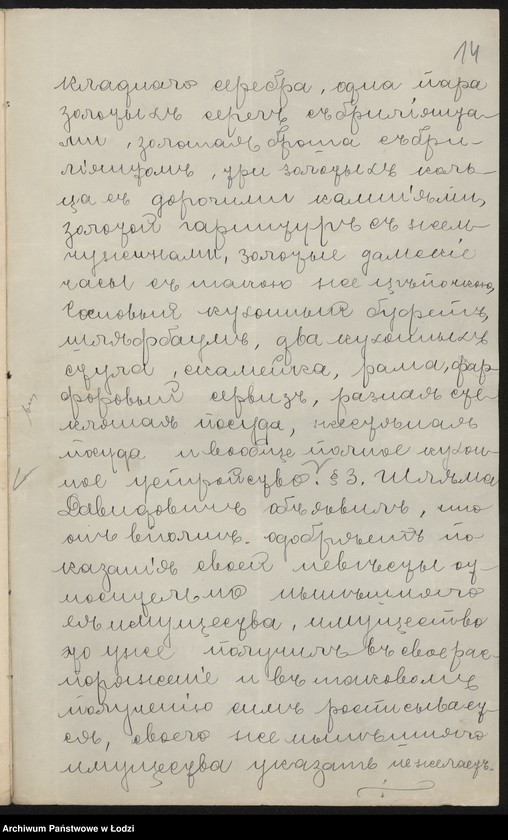 14
кладного серебра, одна пара
золотыхъ серегъ съ бриліянта-
ми, золотая брошь съ бри-
ліянтомъ, три золотыхъ коль-
ца съ дорогими камнями,
золотой гарнитуръ съ жем-
чужинами, золотые дамскіе
часы съ такою же цѣпочкою,
сосновый кухонный буфетъ,
шлафбаумъ, два кухонныхъ
стула, скамейка, рама, фар-
форовый сервизъ, разная сте-
клянная посуда, жестяная
посуда и вообще полное кухон-
ное устройство. § 3. Шляма
Давидовичъ объявилъ, что
онъ вполнѣ одобряетъ по-
казанія своей невѣсты от-
носительно нынѣшняго
ея имущества, имущество
то уже получилъ въ свое рас-
поряженіе и въ таковомъ
полученіи симъ росписывает-
ся, своего же нынѣшняго
имущества указать не желаетъ.
Archiwum Państwowe w Łodzi